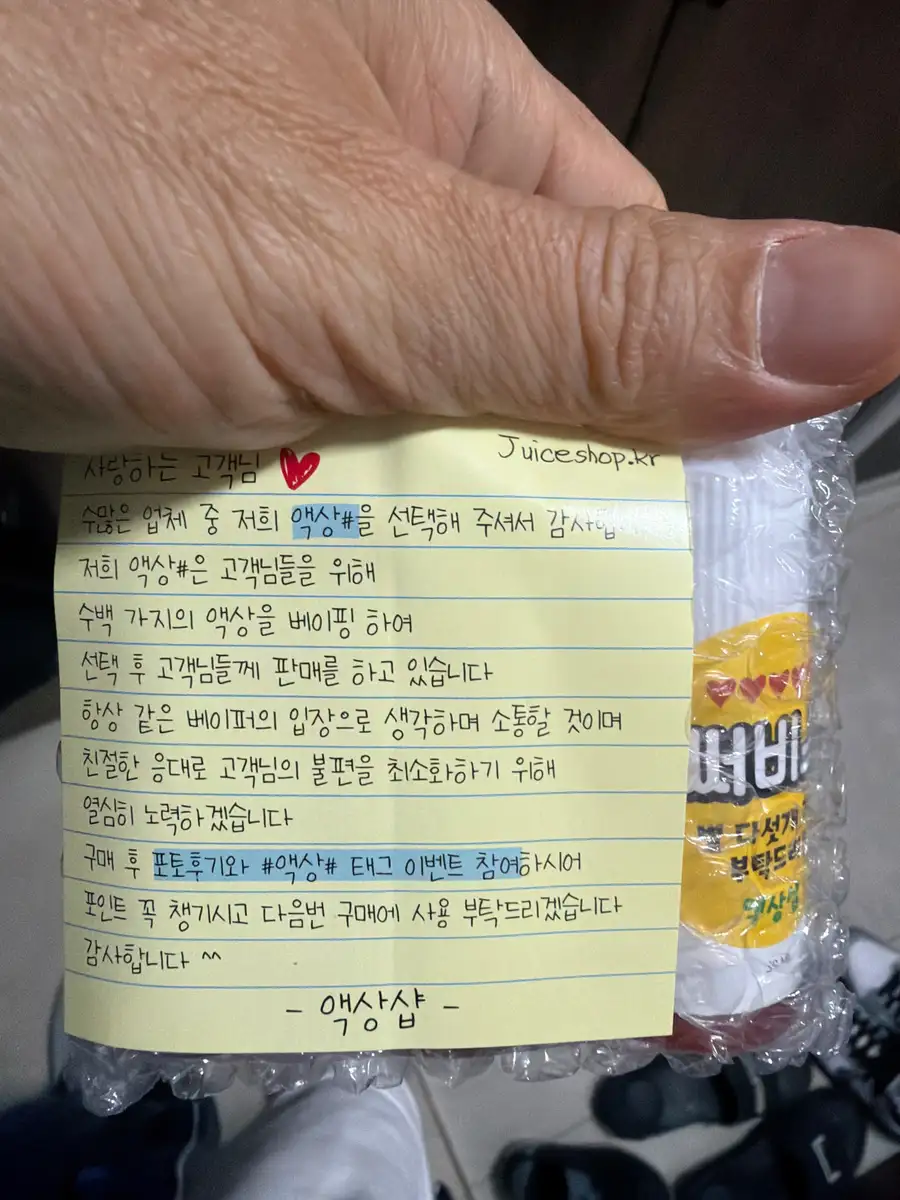 Juiceshop.kr
사랑하는 고객님
수많은 업체 중 저희 액상#을 선택해 주셔서 감사합
저희 액상#은 고객님들을 위해
수백 가지의 액상을 베이핑 하여
선택 후 고객님들께 판매를 하고 있습니다
항상 같은 베이퍼의 입장으로 생각하며 소통할 것이며
친절한 응대로 고객님의 불편을 최소화하기 위해
열심히 노력하겠습니다
구매 후 포토후기와 #액상# 태그 이벤트 참여하시어
포인트 꼭 챙기시고 다음번 구매에 사용 부탁드리겠습니다
감사합니다 ^^
- 액상샵 -
써비
별 다섯개
부탁드려
액상샵